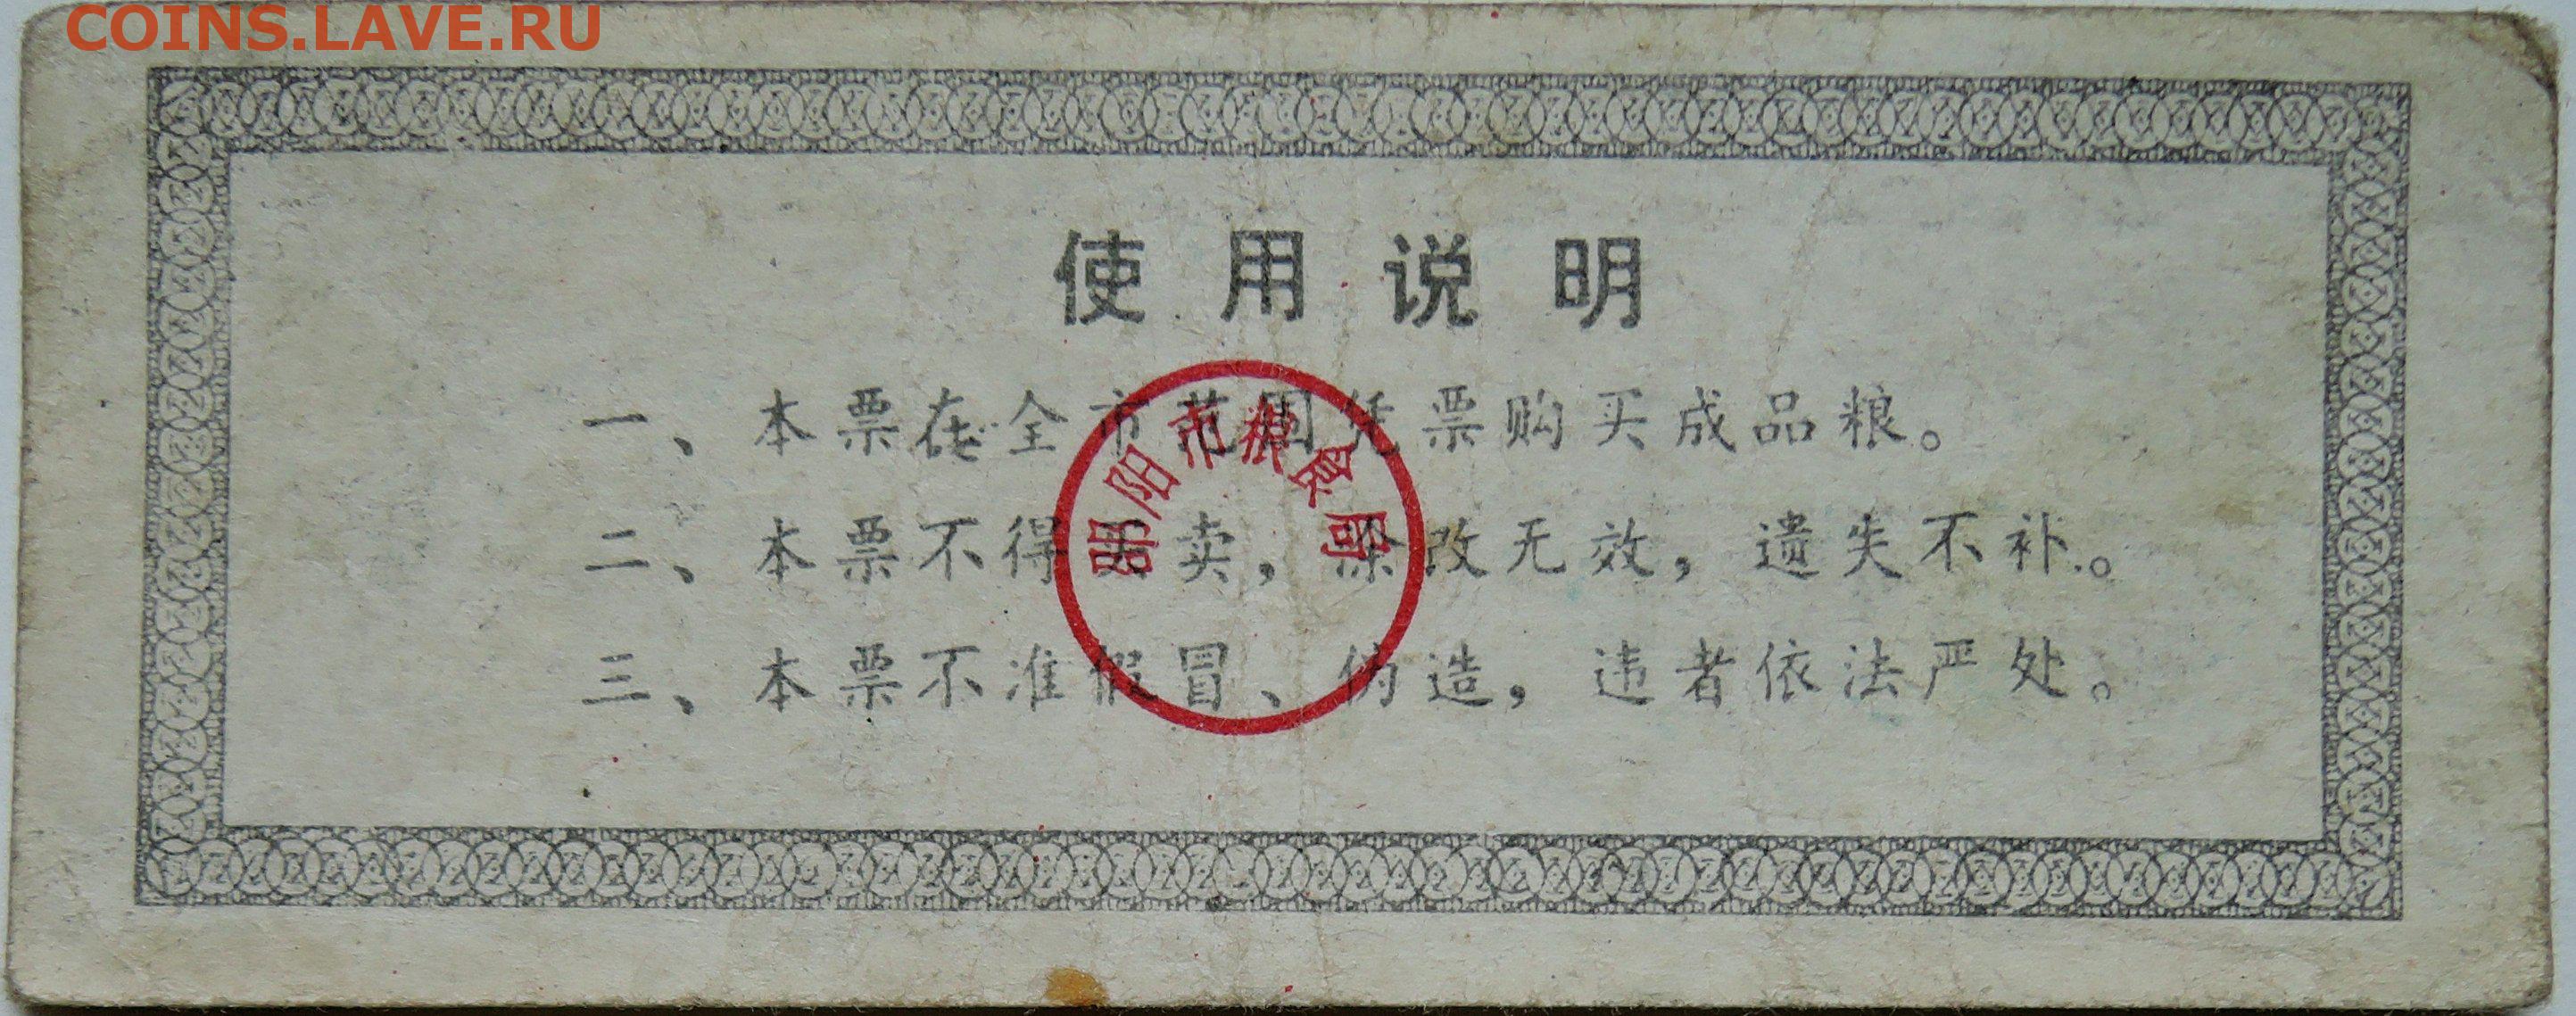 COINS.LAVE.RU
使用说明
一、本票在全市范围凭票购买成品粮。
二、本票不得买卖，涂改无效，遗失不补。
三、本票不准假冒、伪造，违者依法严处。
邵阳市粮食局